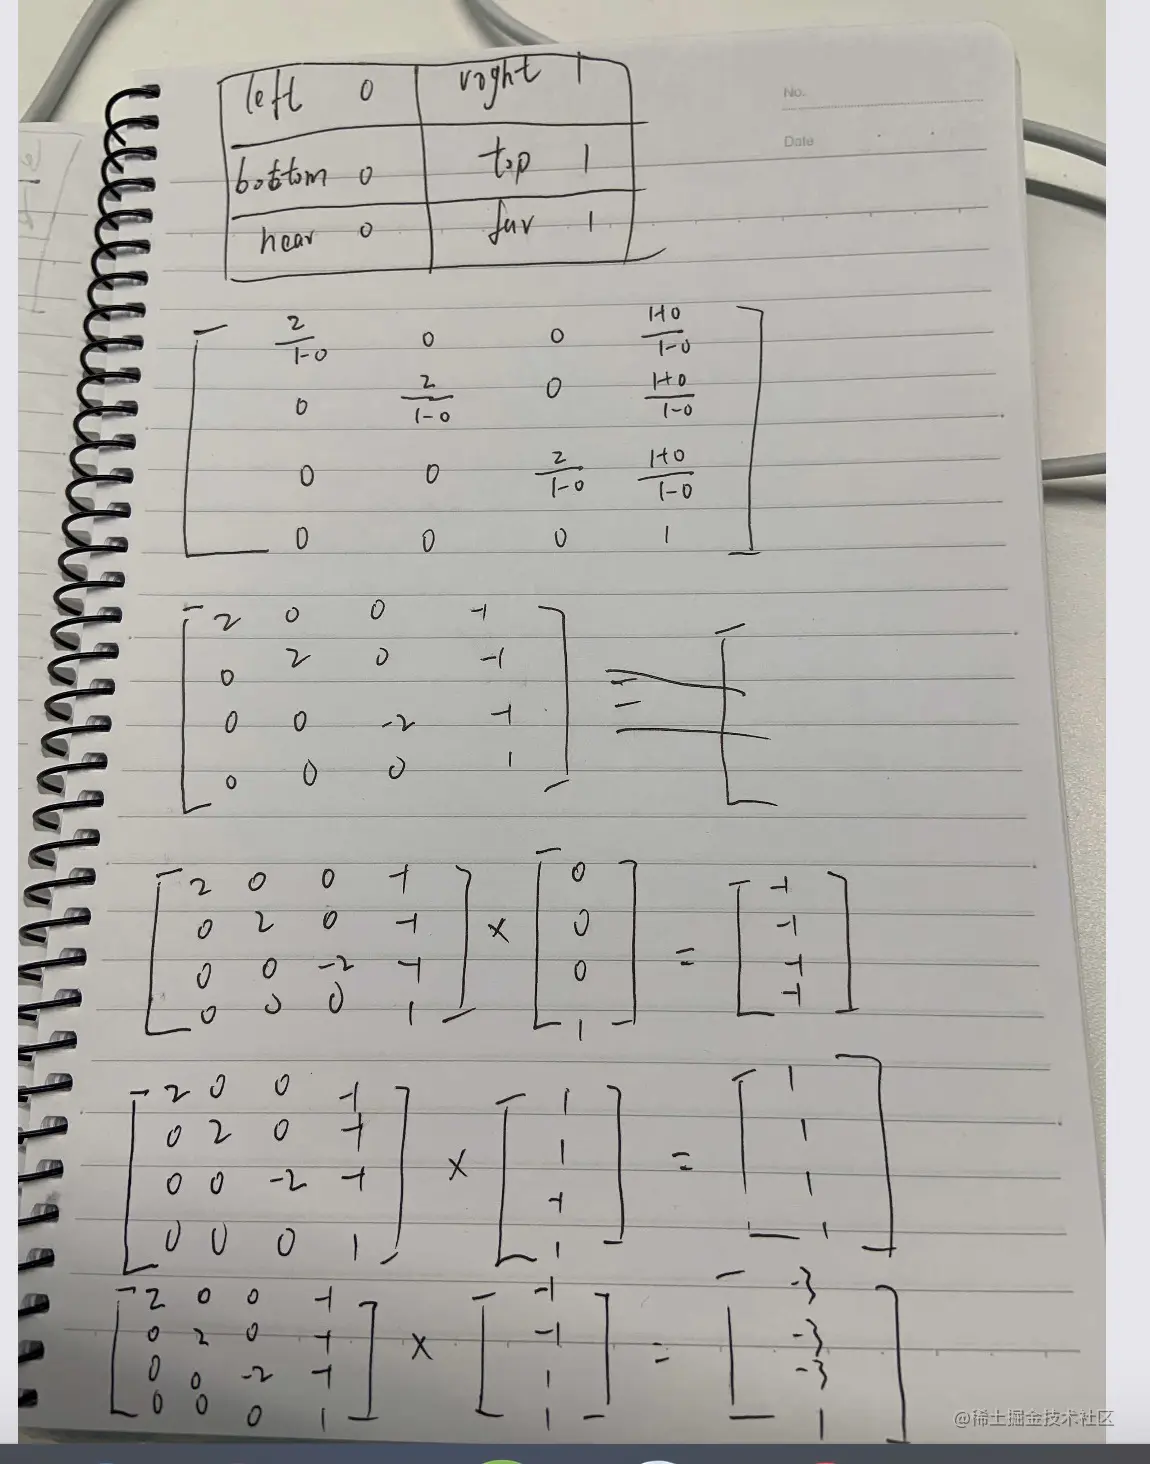 No.
Date
left 0 right 1
bottom 0 top 1
near 0 far 1
2/1-0 0 0 1+0/1-0
0 2/1-0 0 1+0/1-0
0 0 2/1-0 1+0/1-0
0 0 0 1
2 0 0 -1
0 2 0 -1
0 0 -2 -1
0 0 0 1
=
2 0 0 -1 0 -1
0 2 0 -1 × 0 -1
0 0 -2 -1 0 = -1
0 0 0 1 1 -1
2 0 0 -1 1 1
0 2 0 -1 × 1 = 1
0 0 -2 -1 -1 1
0 0 0 1 1 1
2 0 0 -1 -1 -3
0 2 0 -1 × -1 = -3
0 0 -2 -1 1 -3
0 0 0 1 1 1
@稀土掘金技术社区